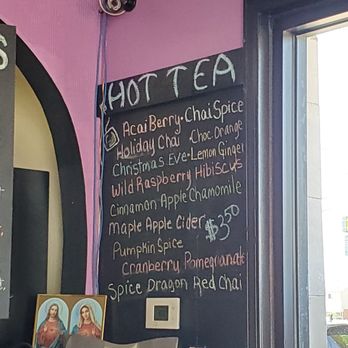 S
HOT TEA
Acai Berry • Chai Spice
Holiday Chai • Choc. Orange
Christmas Eve • Lemon Ginger
Wild Raspberry Hibiscus
Cinnamon Apple Chamomile
Maple Apple Cider $3.50
Pumpkin Spice
Cranberry Pomegranate
Spice Dragon Red Chai